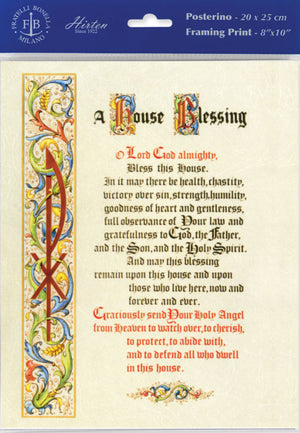 FRATELLI BONELLA
FB
MILANO
Hirten
Since 1922
Posterino - 20 x 25 cm
Framing Print - 8"x10"
A House Blessing
O Lord God almighty,
Bless this House.
In it may there be health, chastity,
victory over sin, strength, humility,
goodness of heart and gentleness,
full observance of Your law and
gratefulness to God, the Father,
and the Son, and the Holy Spirit.
And may this blessing
remain upon this house and upon
those who live here, now and
forever and ever.
Graciously send Your Holy Angel
from Heaven to watch over, to cherish,
to protect, to abide with,
and to defend all who dwell
in this house.